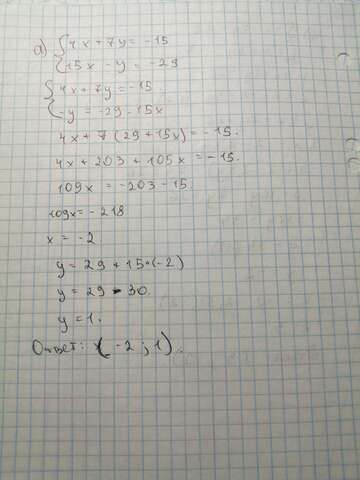 а) { 4x + 7y = -15
15x - y = -29
{ 4x + 7y = -15
-y = -29 - 15x
4x + 7(29 + 15x) = -15.
4x + 203 + 105x = -15.
109x = -203 - 15
109x = -218
x = -2
y = 29 + 15·(-2)
y = 29 - 30.
y = 1.
Ответ: (-2; 1).